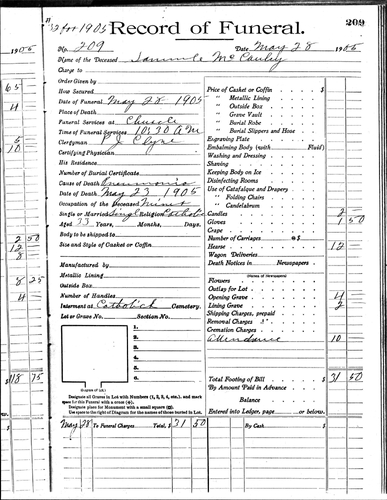 2 for 1905
Record of Funeral.
209
1905
No. 209
Date May 28 1905
Name of the Deceased Sammule McCauley
Charge to
Order Given by
How Secured
Date of Funeral May 28 1905
Place of Death
Funeral Services at Church
Time of Funeral Services 10:30 AM
Clergyman P J Clyne
Certifying Physician
His Residence
Number of Burial Certificate
Cause of Death Pneumonia
Date of Death May 23 1905
Occupation of the Deceased Miner
Single or Married Single Religion Catholic
Aged 33 Years, Months, Days.
Body to be shipped to
Size and Style of Casket or Coffin.
Manufactured by
Metallic Lining
Outside Box
Number of Handles
Interment at Catholick Cemetery.
Lot or Grave No. Section No.
1.
2.
3.
4.
5.
6.
Diagram of Lot
Designate all Graves in Lot with Numbers (1, 2, 3, 4, etc.), and mark
spot for this Funeral with a cross (+).
Designate place for Monument with a small square (□).
Use space to the right of Diagram for the names of those buried in Lot.
May 28 To Funeral Charges Total, $ 31 50
Price of Casket or Coffin $
" Metallic Lining
" Outside Box
" Grave Vault
" Burial Robe
" Burial Slippers and Hose
Engraving Plate
Embalming Body (with Fluid)
Washing and Dressing
Shaving
Keeping Body on Ice
Disinfecting Rooms
Use of Catafalque and Drapery
" Folding Chairs
" Candelabrum
Candles 2
Gloves 1 50
Crape
Number of Carriages @ $
Hearse 12
Wagon Deliveries
Death Notices in Newspapers
(Names of Newspapers)
Flowers
Outlay for Lot
Opening Grave 4
Lining Grave 2
Shipping Charges, prepaid
Removal Charges
Cremation Charges
Attendance 10
Total Footing of Bill $ 31 50
By Amount Paid in Advance
Balance
Entered into Ledger, page or below.
By Cash $
65
4
5
10
2 50
12
8
8 25
4
118 75